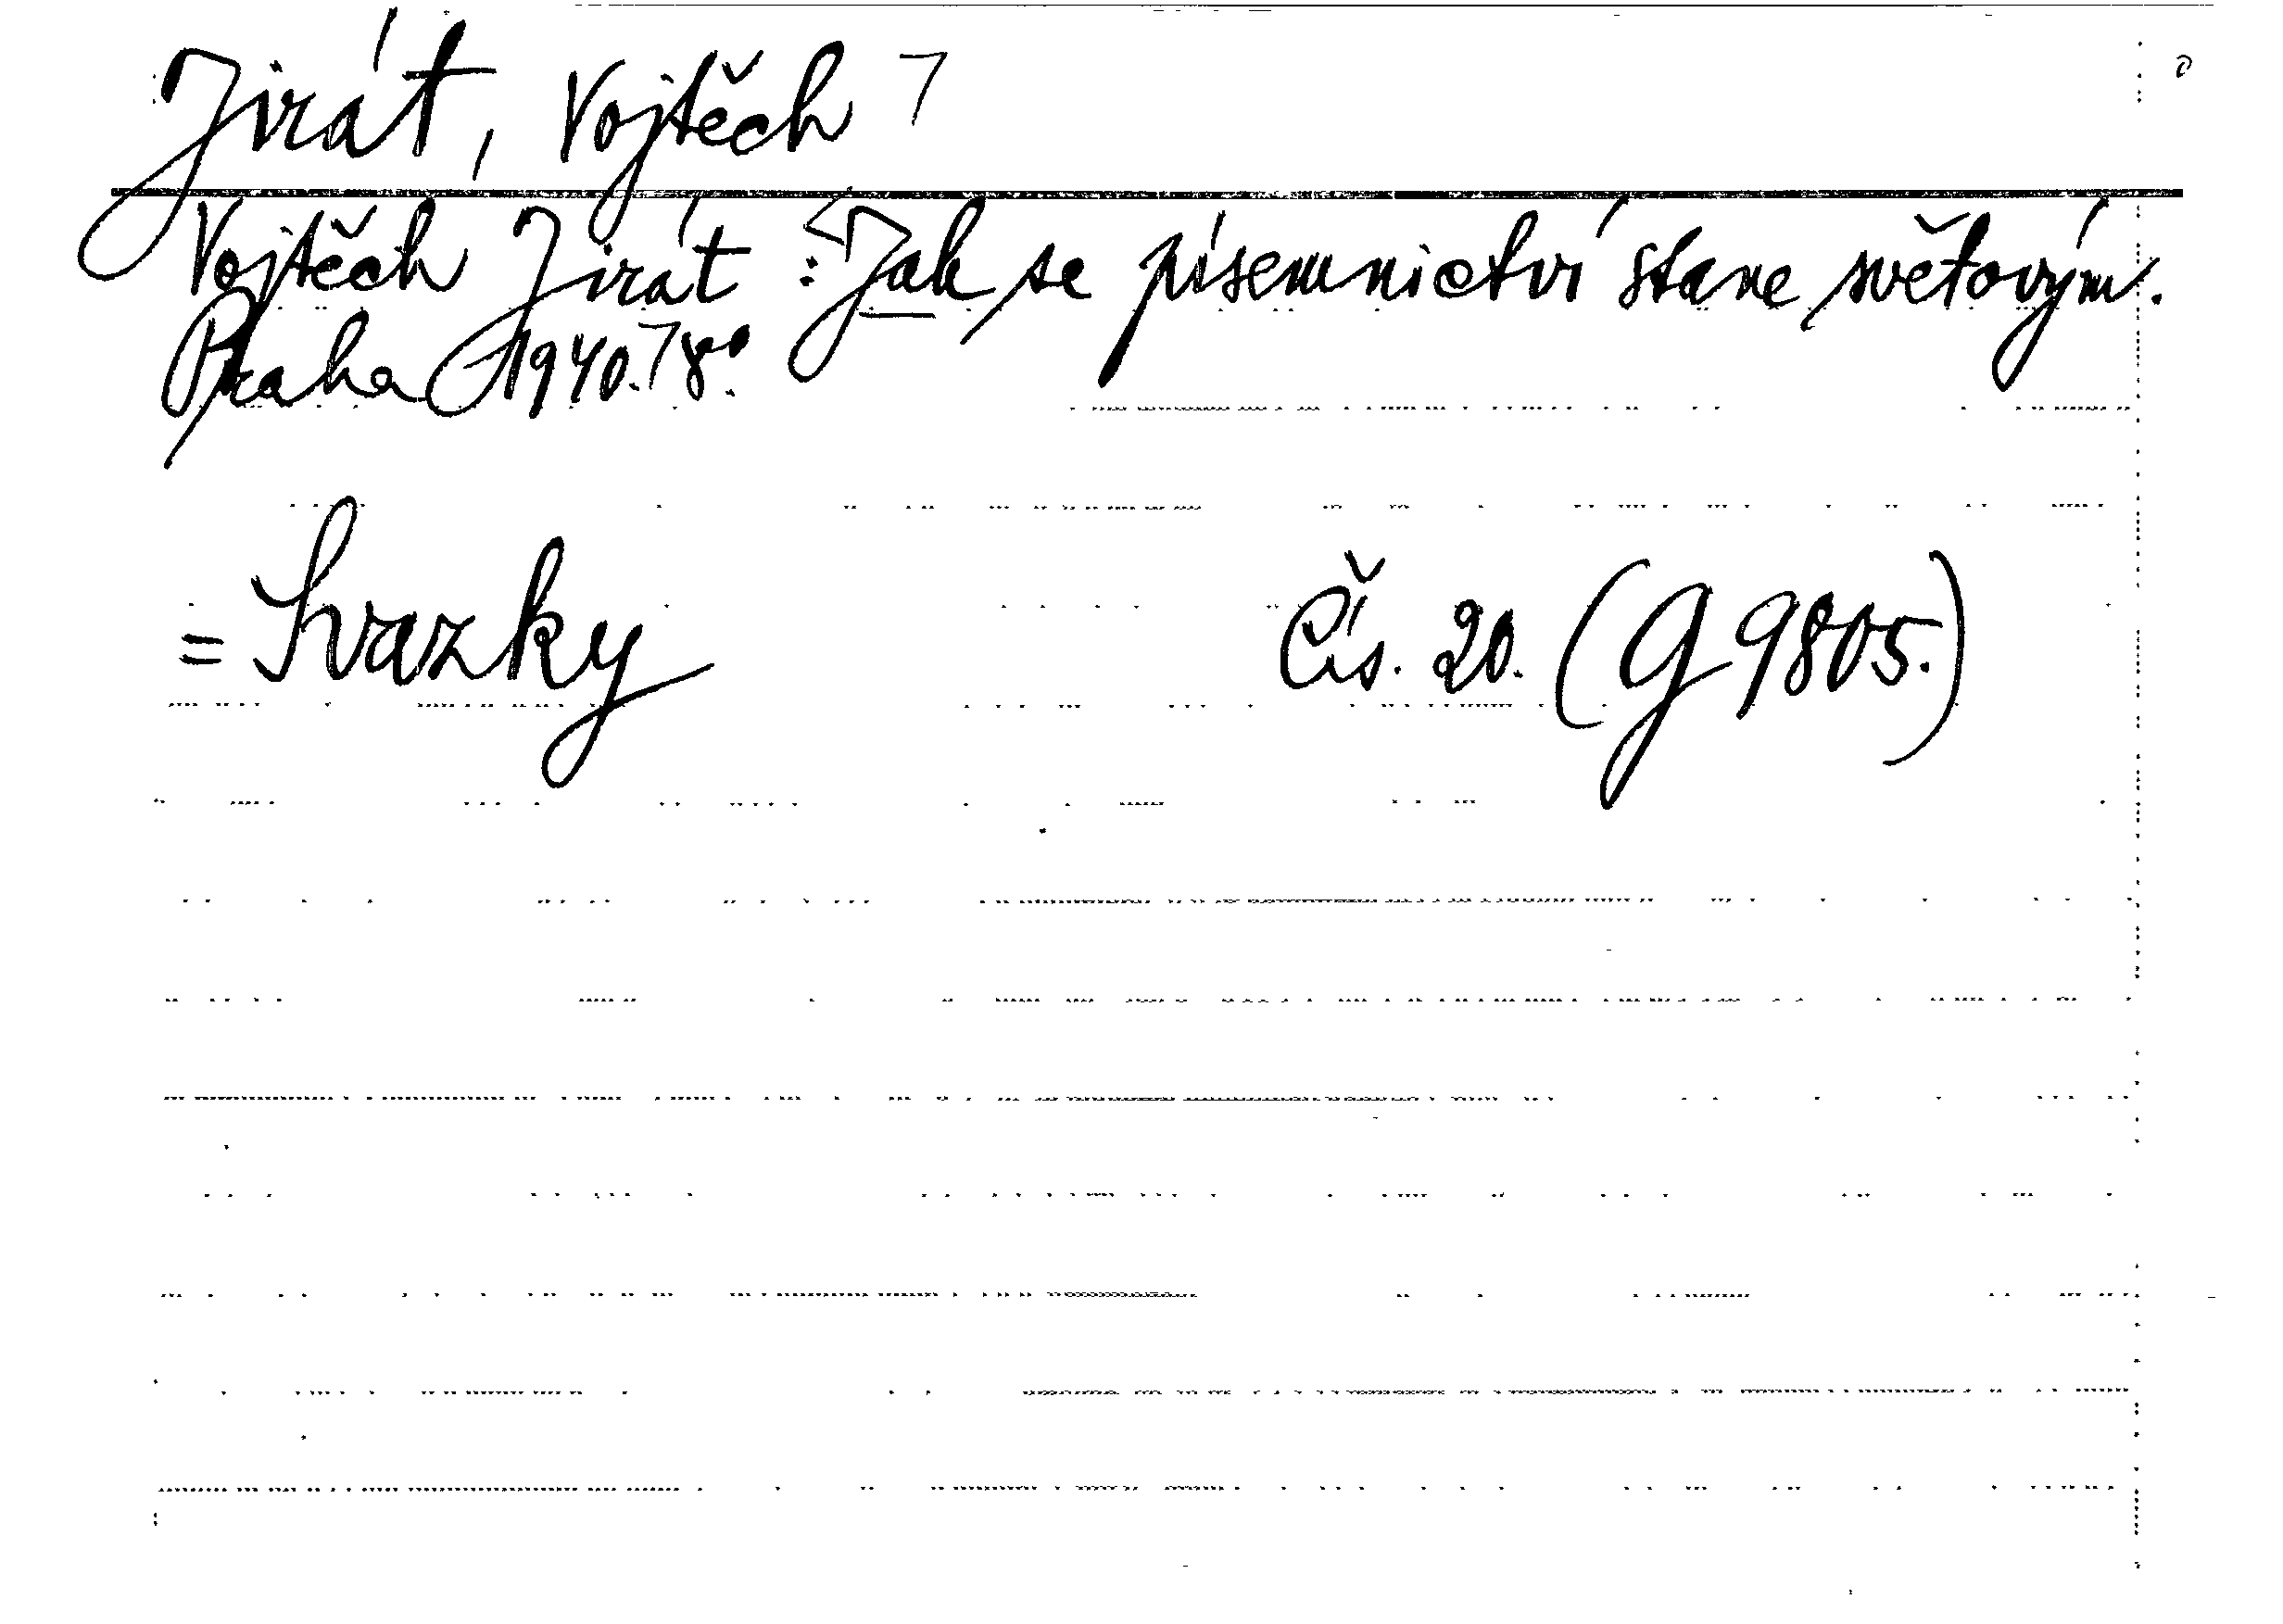 Jirát, Vojtěch
Vojtěch Jirát: Jak se písemnictví stane světovým.
Praha 1940. 8°.
= Svazky Čís. 20. (G 9805.)